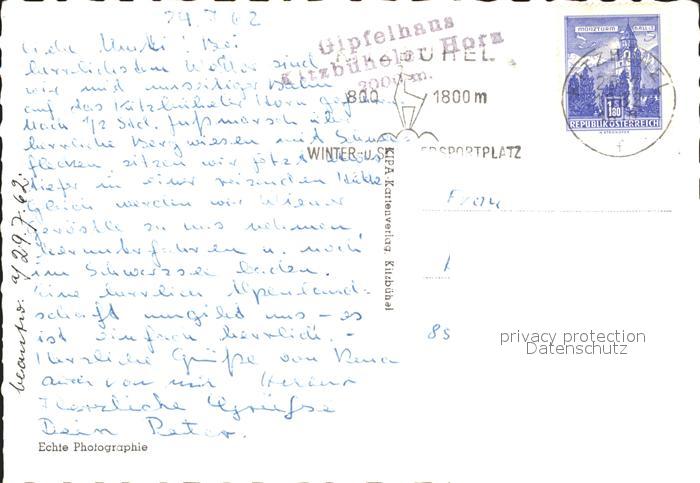 24.7.62
Liebe Mutti! Bei
herrlichstem Wetter sind
wir mit Bahn
auf das Kitzbüheler Horn
Nach 1/2 Std. Fußmarsch über
herrliche Bergwiesen mit Schnee-
flecken sitzen wir jetzt etwas
tiefer in einer reizenden Hütte
Gleich werden wir Wiener
zu uns nehmen,
herunterfahren u. noch
im Schwarzsee baden.
Eine herrliche Alpenland-
schaft umgibt uns – es
ist einfach herrlich. –
Herzliche Grüße von
auch von mir
Herzliche Grüße
Dein Peter.
Echte Photographie
beantw. 29.7.62.
Gipfelhaus
Kitzbüheler Horz
2000 m.
BÜHEL
800 1800m
WINTER-u.S ERSPORTPLATZ
KIPA-Kartenverlag Kitzbühel
MÜNZTURM HALL i.T.
1.80
REPUBLIK ÖSTERREICH
KITZBÜHEL
f
Frau
8s
privacy protection
Datenschutz